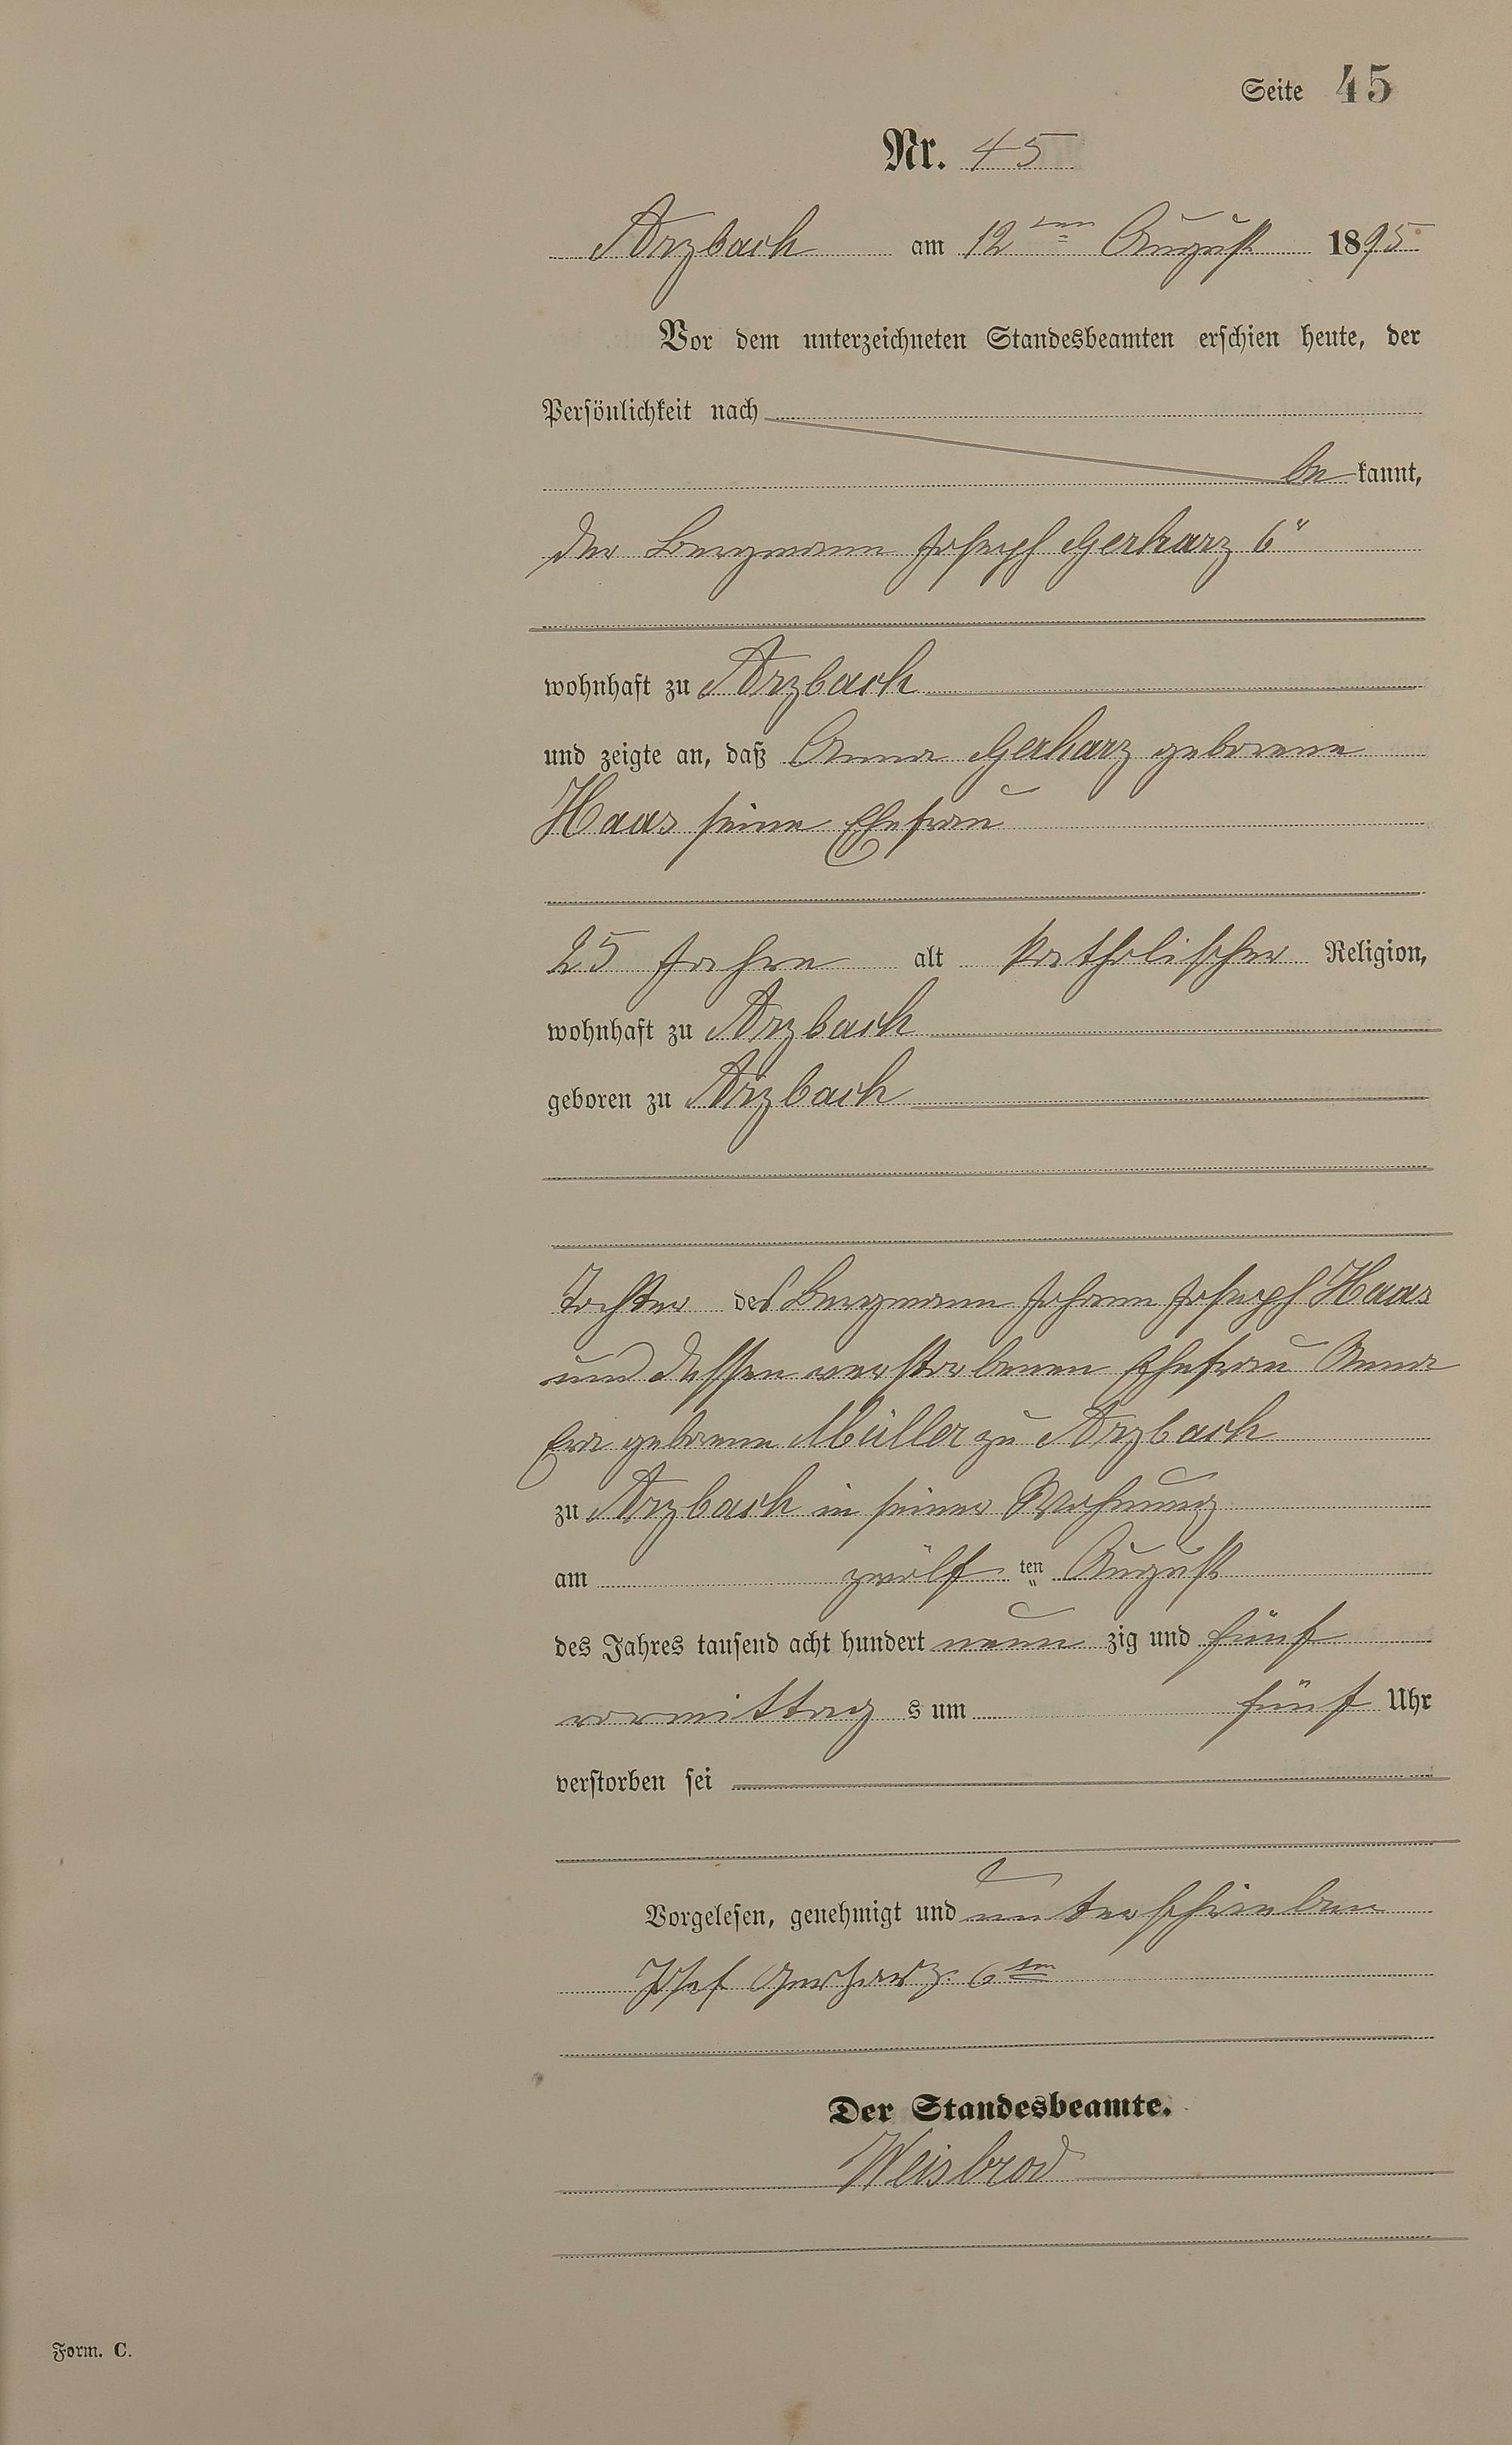 Seite 45
Nr. 45
Arzbach am 12ten August 1895
Vor dem unterzeichneten Standesbeamten erschien heute, der
Persönlichkeit nach
be kannt,
der Bergmann Joseph Gerharz 6"
wohnhaft zu Arzbach
und zeigte an, daß Anna Gerharz geborene
Haas seine Ehefrau
25 Jahre alt katholischer Religion,
wohnhaft zu Arzbach
geboren zu Arzbach
Tochter des Bergmann Johann Joseph Haas
und dessen verstorbenen Ehefrau Anna
Eva geborene Müller zu Arzbach
zu Arzbach in seiner Wohnung
am zwölf ten August
des Jahres tausend acht hundert neun zig und fünf
vormittag s um fünf Uhr
verstorben sei
Vorgelesen, genehmigt und unterschrieben
Josef Gerharz 6ten
Der Standesbeamte.
Weisbrod
Form. C.